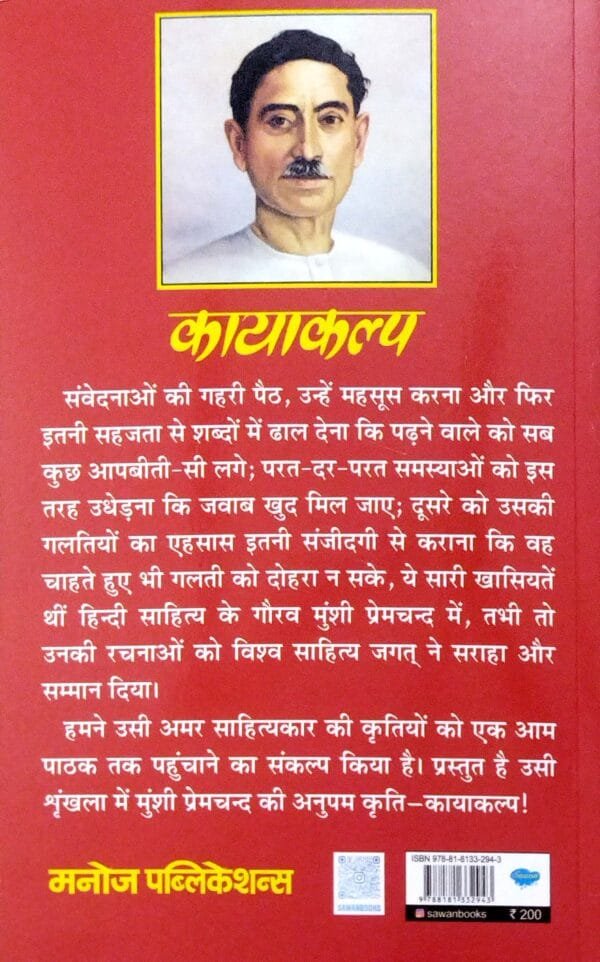 कायाकल्प
संवेदनाओं की गहरी पैठ, उन्हें महसूस करना और फिर
इतनी सहजता से शब्दों में ढाल देना कि पढ़ने वाले को सब
कुछ आपबीती-सी लगे; परत-दर-परत समस्याओं को इस
तरह उधेड़ना कि जवाब खुद मिल जाए; दूसरे को उसकी
गलतियों का एहसास इतनी संजीदगी से कराना कि वह
चाहते हुए भी गलती को दोहरा न सके, ये सारी खासियतें
थीं हिन्दी साहित्य के गौरव मुंशी प्रेमचन्द में, तभी तो
उनकी रचनाओं को विश्व साहित्य जगत् ने सराहा और
सम्मान दिया।
हमने उसी अमर साहित्यकार की कृतियों को एक आम
पाठक तक पहुंचाने का संकल्प किया है। प्रस्तुत है उसी
शृंखला में मुंशी प्रेमचन्द की अनुपम कृति–कायाकल्प!
मनोज पब्लिकेशन्स
SAWANBOOKS
ISBN 978-81-8133-294-3
9 788181 332943
sawanbooks
₹ 200
Sawan